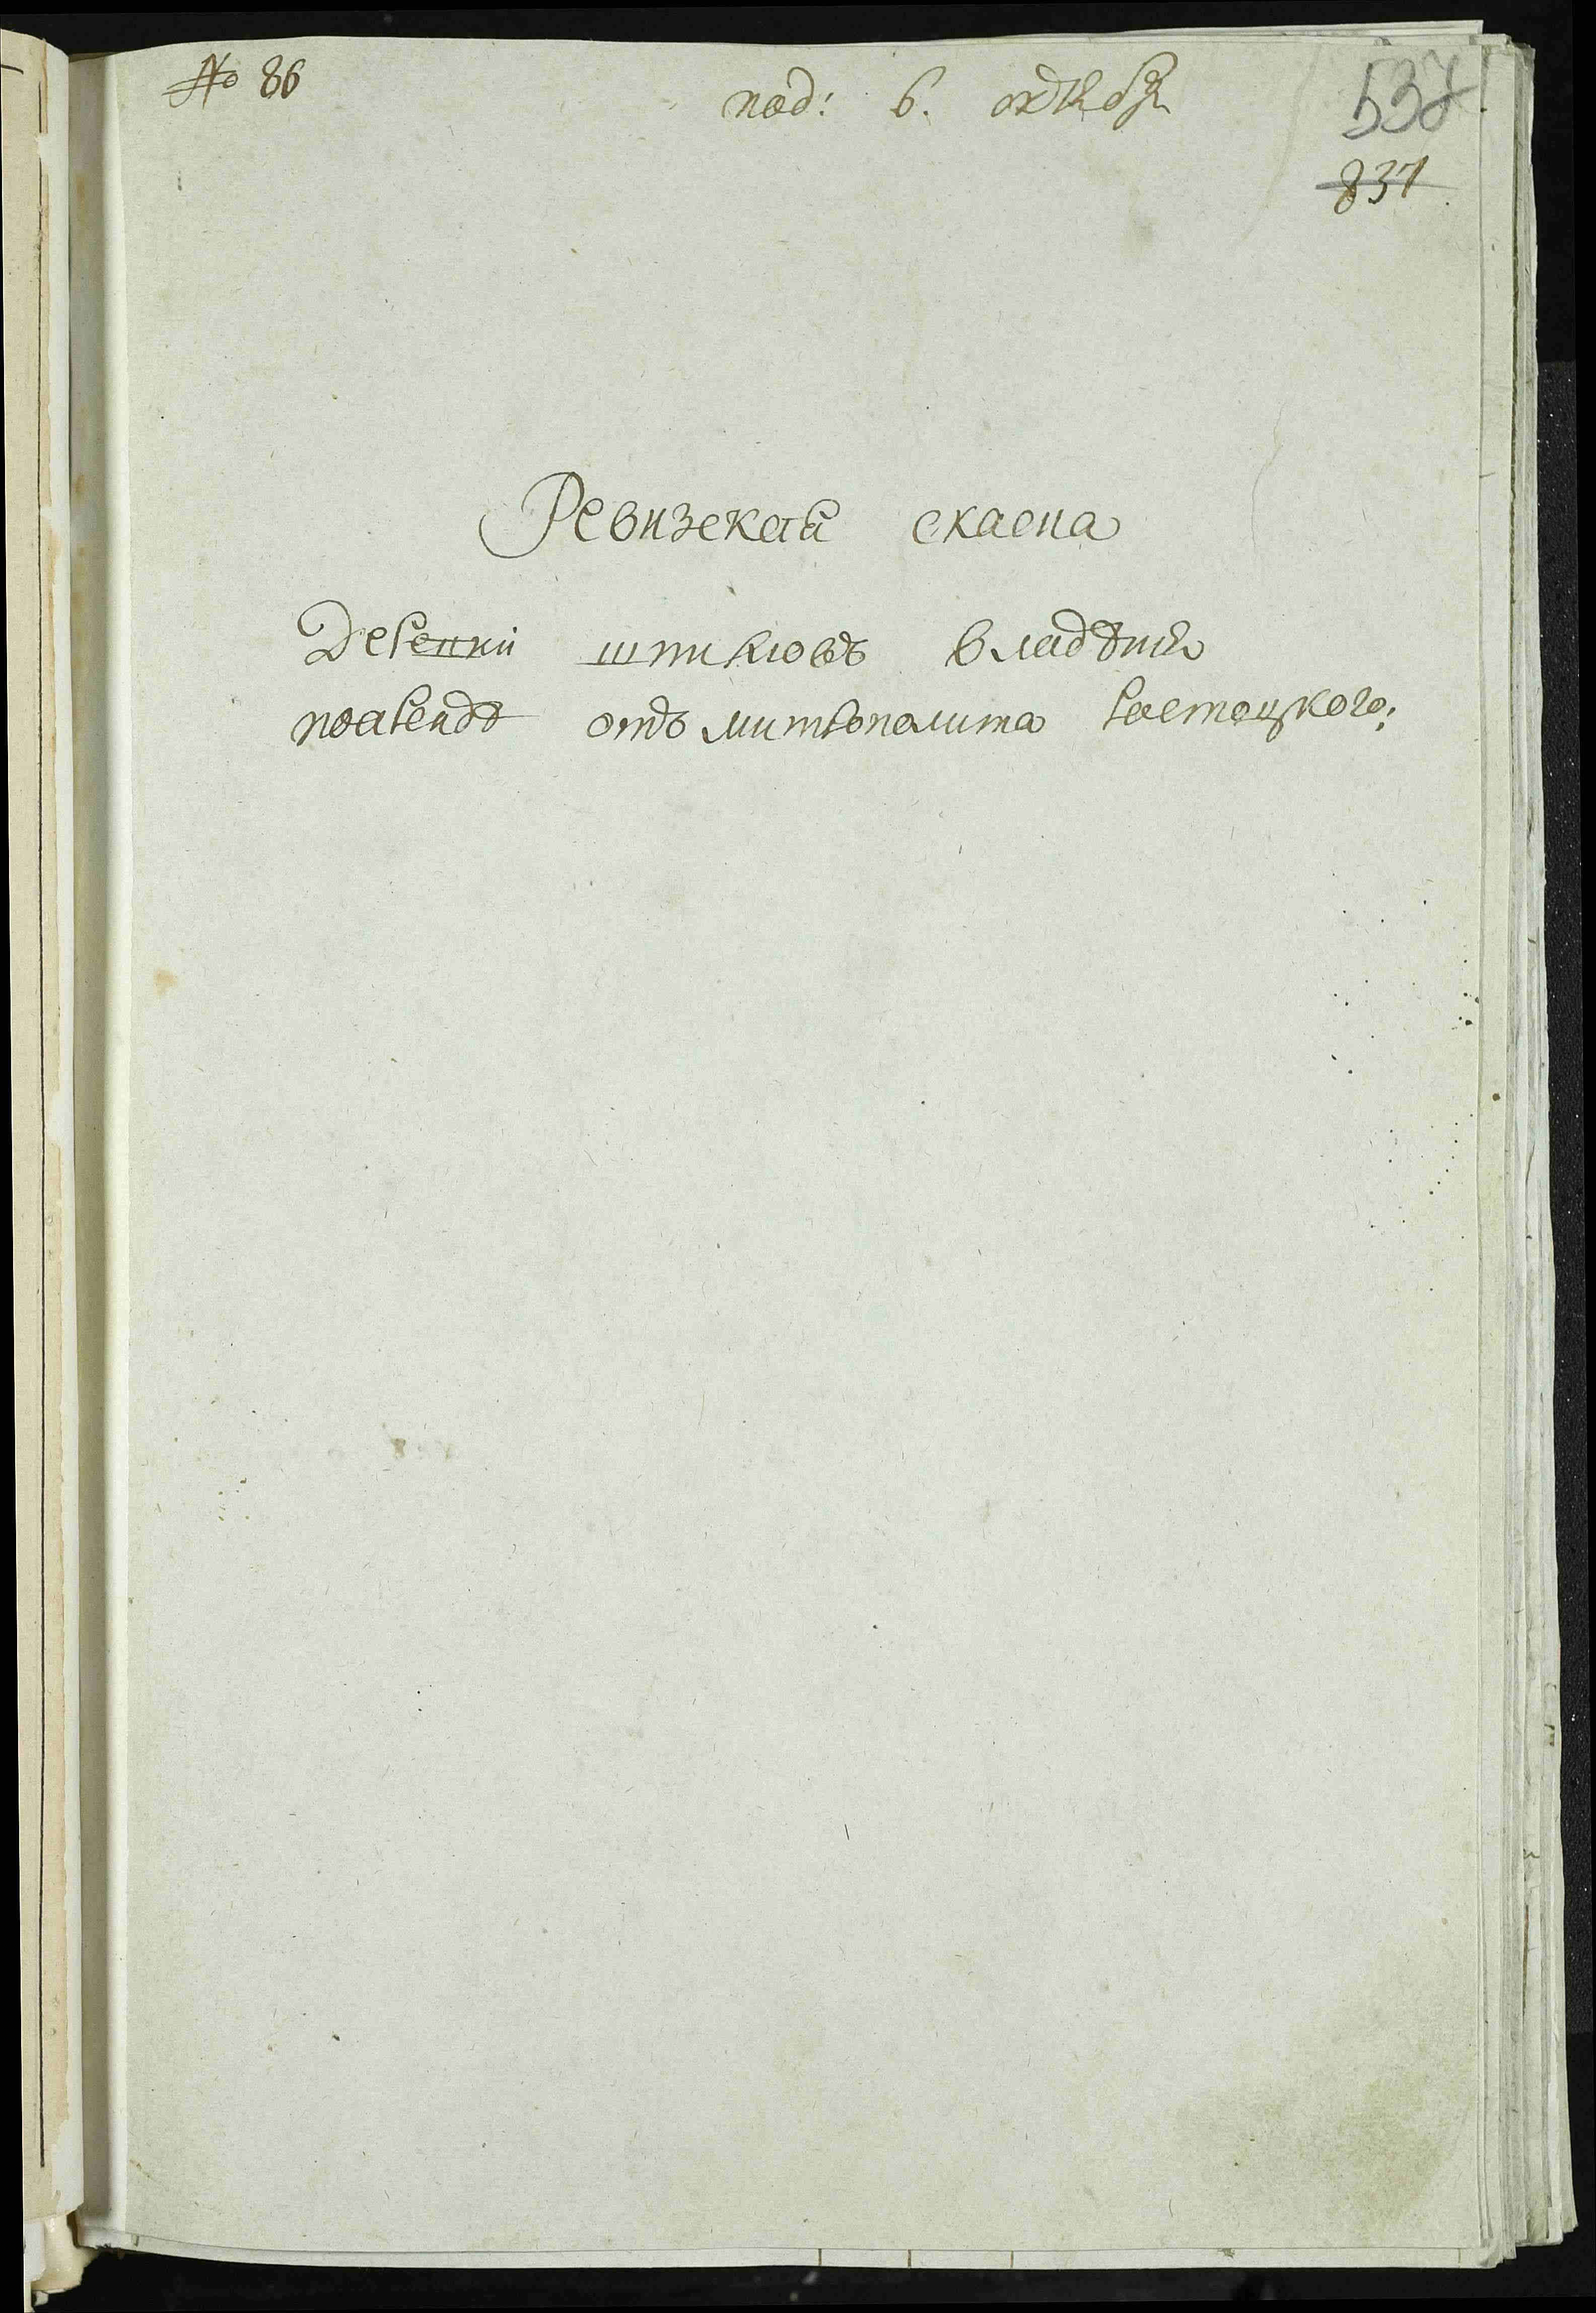 № 86
под: 6. октября
537
837
Ревизская скаска
Деревни шпиковъ владѣния
поаренде отъ митрополита Ростоцкого: